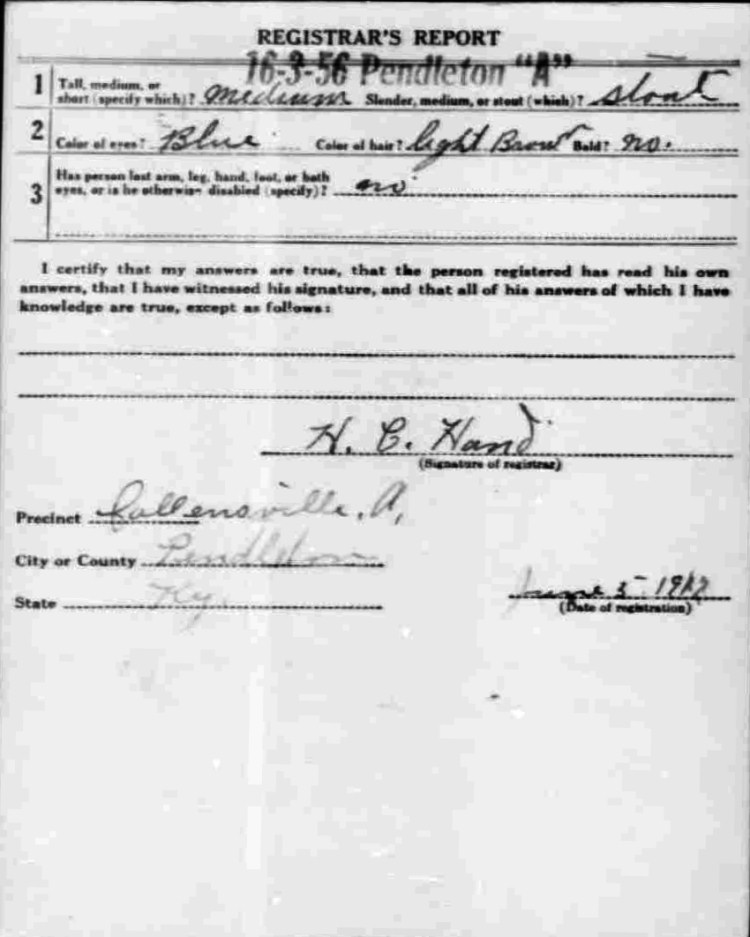 REGISTRAR'S REPORT
16-3-56 Pendleton "A"
1 Tall, medium, or short (specify which)? medium Slender, medium, or stout (which)? stout
2 Color of eyes? Blue Color of hair? light Brown Bald? no.
3 Has person lost arm, leg, hand, foot, or both eyes, or is he otherwise disabled (specify)? no
I certify that my answers are true, that the person registered has read his own
answers, that I have witnessed his signature, and that all of his answers of which I have
knowledge are true, except as follows:
H. C. Hand
(Signature of registrar)
Precinct Callensville. A,
City or County Pendleton
State Ky.
June 5 1917
(Date of registration)